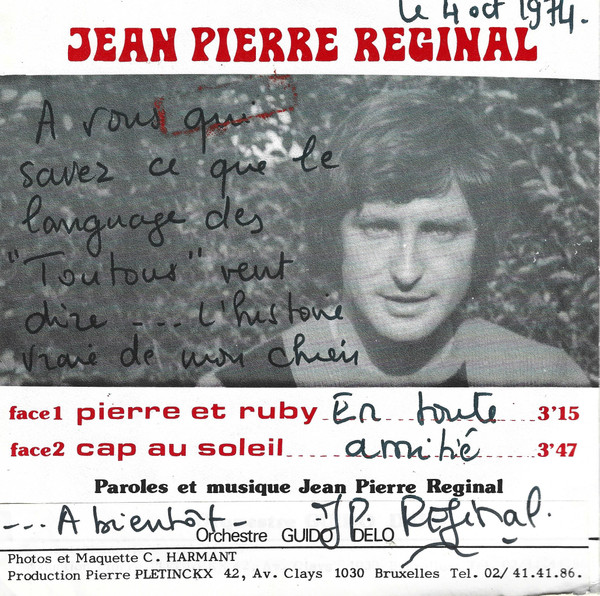 le 4 oct 1974.
JEAN PIERRE REGINAL
A vous qui
savez ce que le
language des
"Toutous" veut
dire --- L'histoire
vraie de mon chien
face1 pierre et ruby En toute 3'15
face2 cap au soleil amitié 3'47
Paroles et musique Jean Pierre Reginal
--- A bientôt - JP. Reginal.
Orchestre GUIDO DELO
Photos et Maquette C. HARMANT
Production Pierre PLETINCKX 42, Av. Clays 1030 Bruxelles Tel. 02/ 41.41.86.